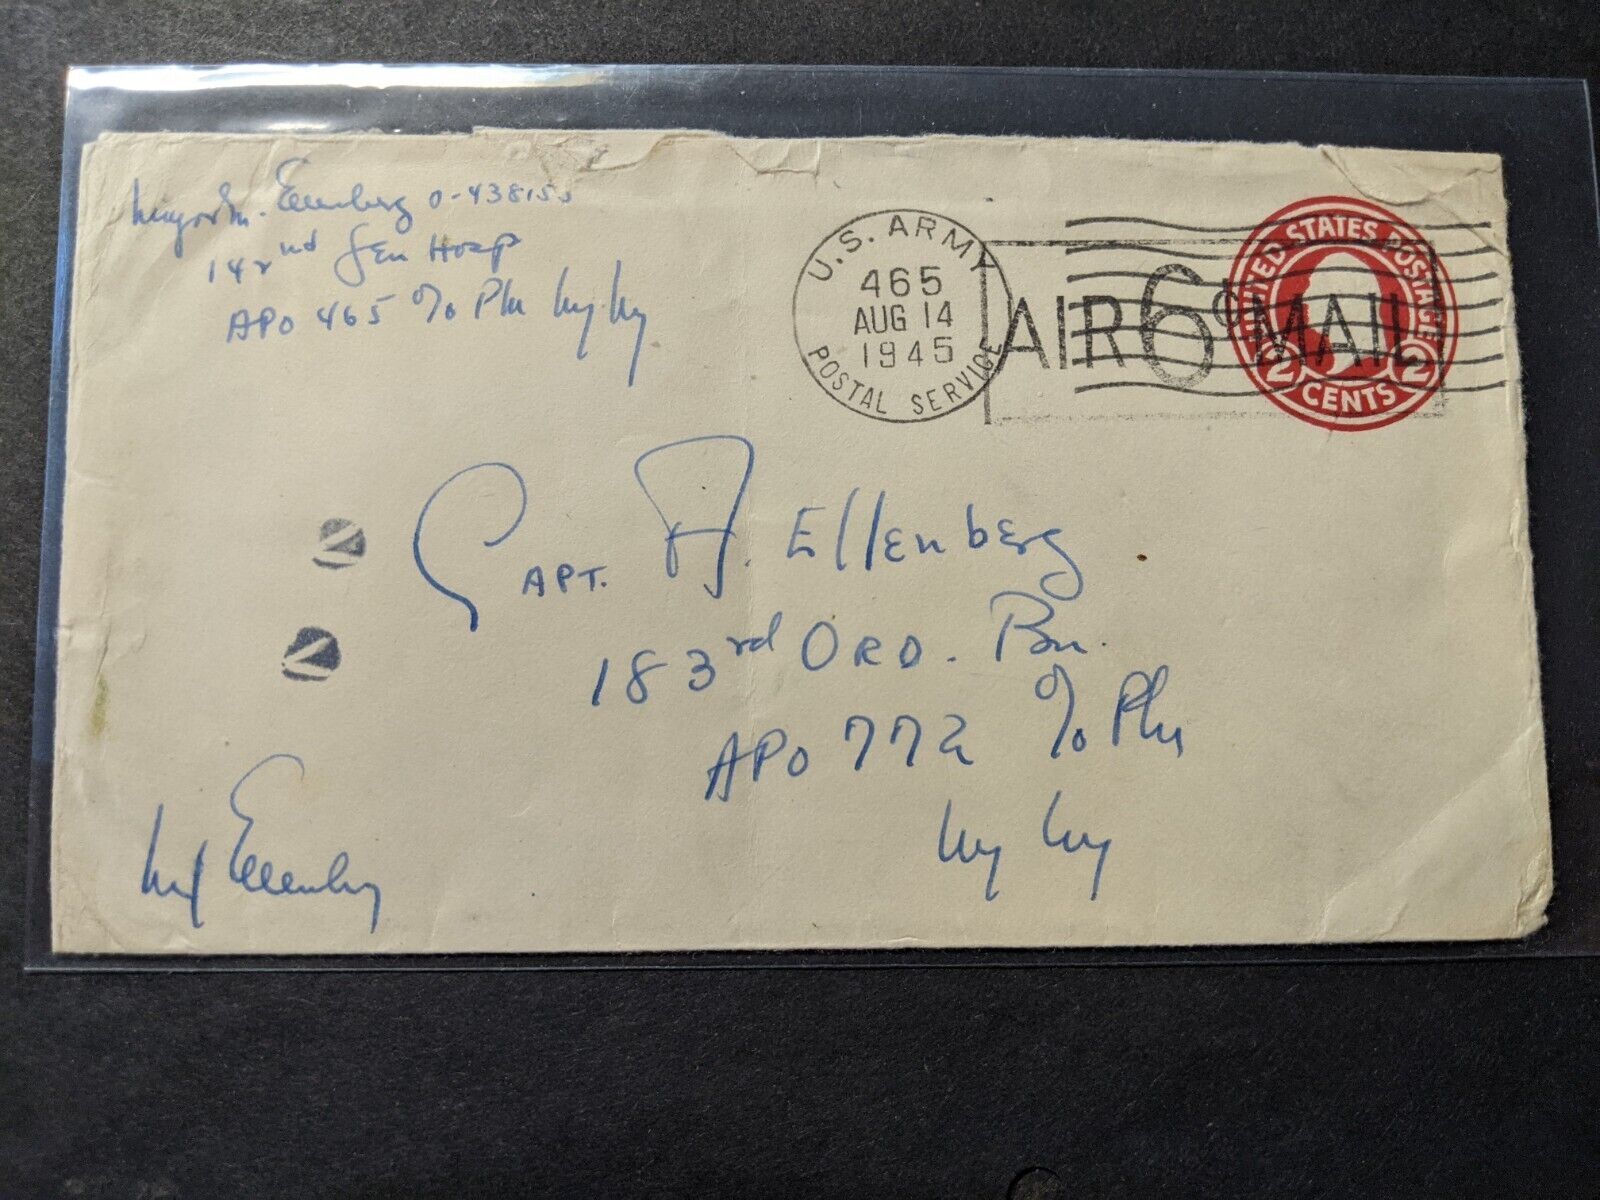 Major M. Ellenberg 0-438155
142nd Gen Hosp
APO 465 c/o PM NY NY
U.S. ARMY
465
AUG 14
1945
POSTAL SERVICE
AIR 6¢ MAIL
UNITED STATES POSTAGE
2 CENTS 2
CAPT. A. Ellenberg
183rd ORD. Bn.
APO 772 c/o PM
NY NY
M Ellenberg